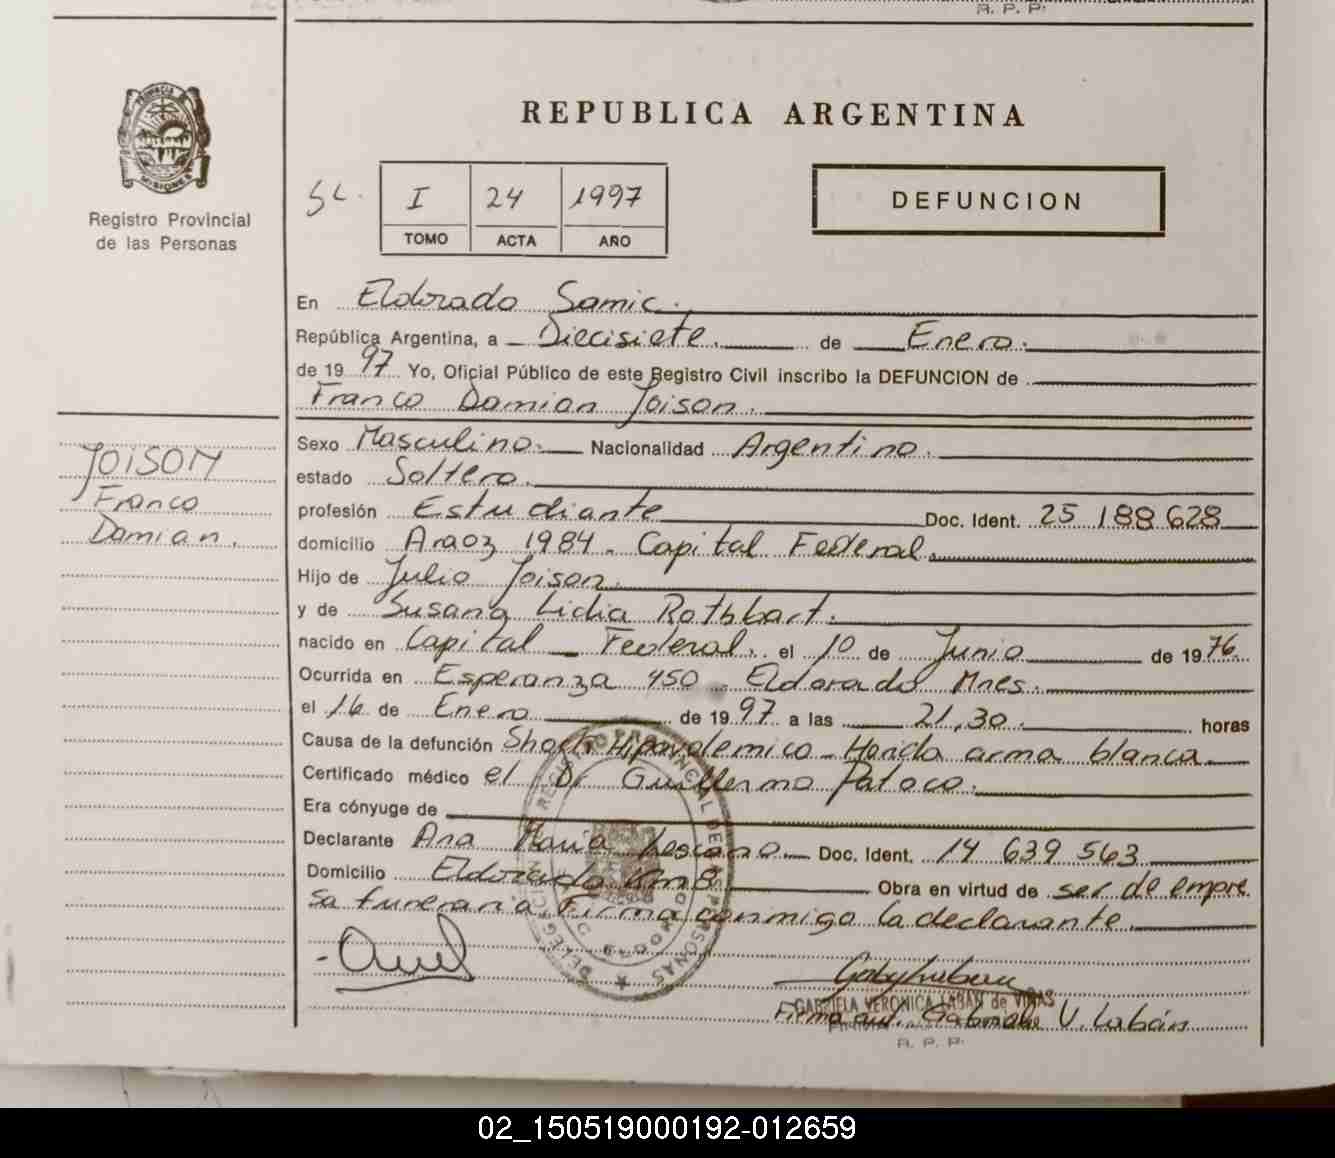 A. P. P.
PROVINCIA DE
MISIONES
Registro Provincial
de las Personas
REPUBLICA ARGENTINA
SL. I 24 1997
TOMO ACTA AÑO
DEFUNCION
En Eldorado Samic.
República Argentina, a Diecisiete. de Enero.
de 1997 Yo, Oficial Público de este Registro Civil inscribo la DEFUNCION de
Franco Damian Joison.
JOISON
Franco
Damian.
Sexo Masculino. Nacionalidad Argentino.
estado Soltero.
profesión Estudiante Doc. Ident. 25 188 628
domicilio Araoz 1984. Capital Federal.
Hijo de Julio Joison.
y de Susana Lidia Rothbart.
nacido en Capital Federal. el 10 de Junio de 1976.
Ocurrida en Esperanza 450 Eldorado Mnes.
el 16 de Enero de 1997 a las 21,30. horas
Causa de la defunción Shock Hipovolemico - Herida arma blanca.
Certificado médico el Dr Guillermo
Era cónyuge de
Declarante Ana Maria Lescano Doc. Ident. 14 639 563
Domicilio Eldorado Km 8 Obra en virtud de ser de empre
sa funeraria Firma conmigo la declarante.
REGISTRO PROVINCIAL DE LAS PERSONAS
DELEGACION
ELDORADO
GABRIELA VERONICA LABAN de VIÑAS
Firma aut. Gabriela V. Labán
A. P. P.
02_150519000192-012659